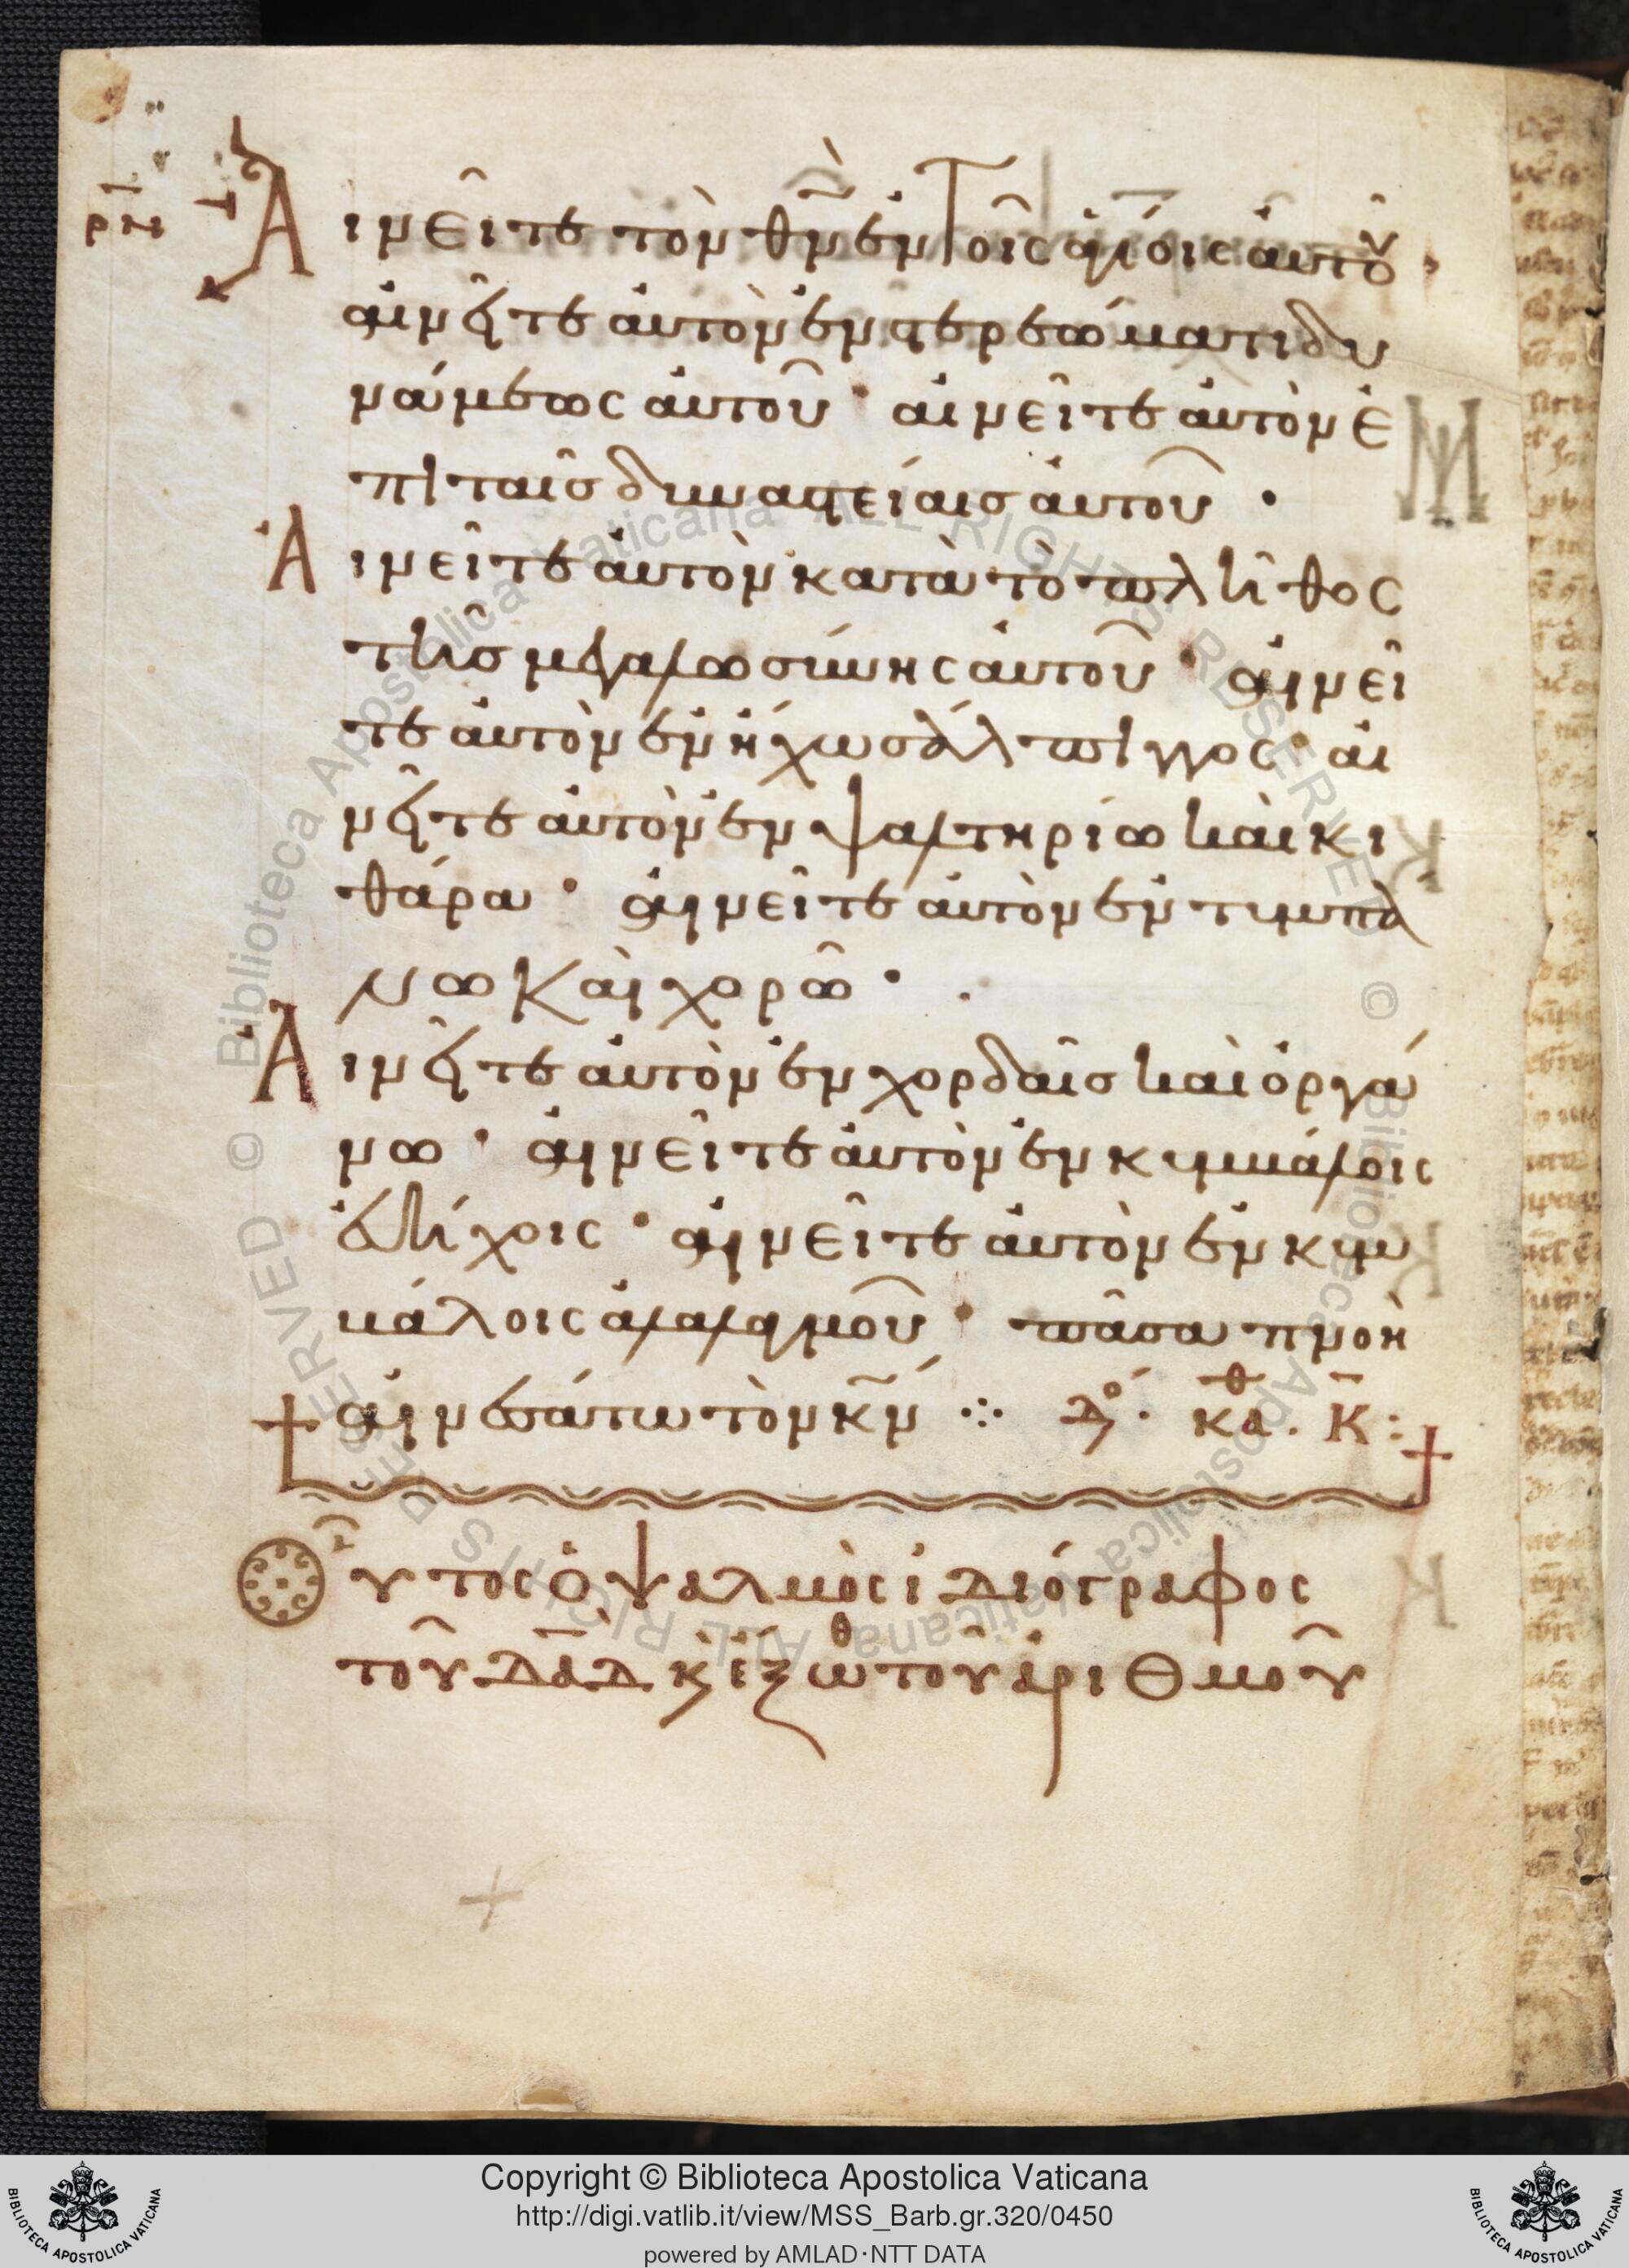 ρν
Αἰνεῖτε τὸν θν ἐν τοῖς ἁγίοις αὐτοῦ
αἰνεῖτε αὐτὸν ἐν στερεώματι δυ
νάμεως αὐτοῦ· αἰνεῖτε αὐτὸν ἐ
πὶ ταῖς δυναστείαις αὐτοῦ·
Αἰνεῖτε αὐτὸν κατὰ τὸ πλῆθος
τῆς μεγαλωσύνης αὐτοῦ· αἰνεῖ
τε αὐτὸν ἐν ἤχω σάλπιγγος· αἰ
νεῖτε αὐτὸν ἐν ψαλτηρίω καὶ κι
θάρα· αἰνεῖτε αὐτὸν ἐν τυμπά
νω Καὶ χορῶ·
Αἰνεῖτε αὐτὸν ἐν χορδαῖς καὶ ὀργά
νω· αἰνεῖτε αὐτὸν ἐν κυμβάλοις
ἐυήχοις· αἰνεῖτε αὐτὸν ἐν κυμ
βάλοις ἀλαλαγμοῦ· πᾶσα πνοὴ
αἰνεσάτω τὸν κν ⁘ Δο· καθ. Κ:
Οὗτος ὁ ψαλμὸς ἰδιόγραφος
τοῦ Δαδ κὶ ἔξωθ τοῦ ἀριθμοῦ
Copyright © Biblioteca Apostolica Vaticana
http://digi.vatlib.it/view/MSS_Barb.gr.320/0450
powered by AMLAD·NTT DATA
BIBLIOTECA APOSTOLICA VATICANA
BIBLIOTECA APOSTOLICA VATICANA
© Biblioteca Apostolica Vaticana ALL RIGHTS RESERVED © Biblioteca Apostolica Vaticana ALL RIGHTS RESERVED